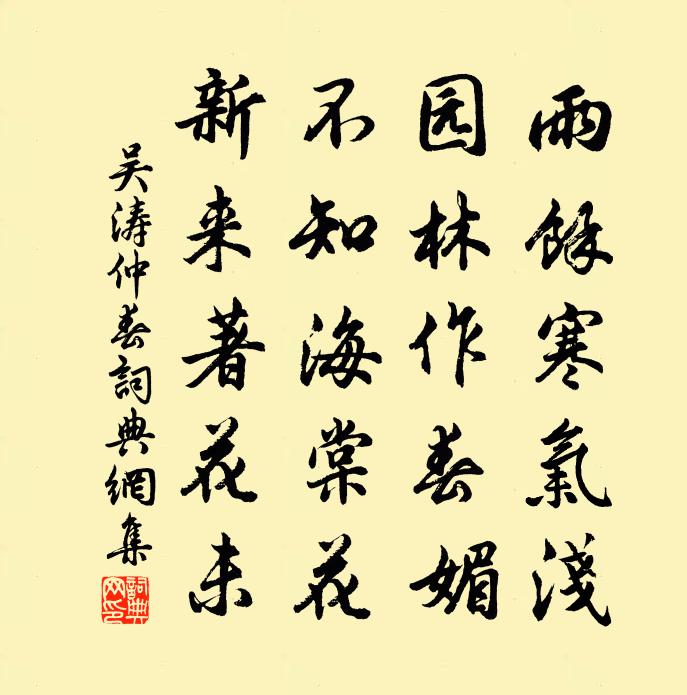 雨餘寒氣淺
园林作春媚
不知海棠花
新来著花未
吴涛仲春詞典網集
詞典网印